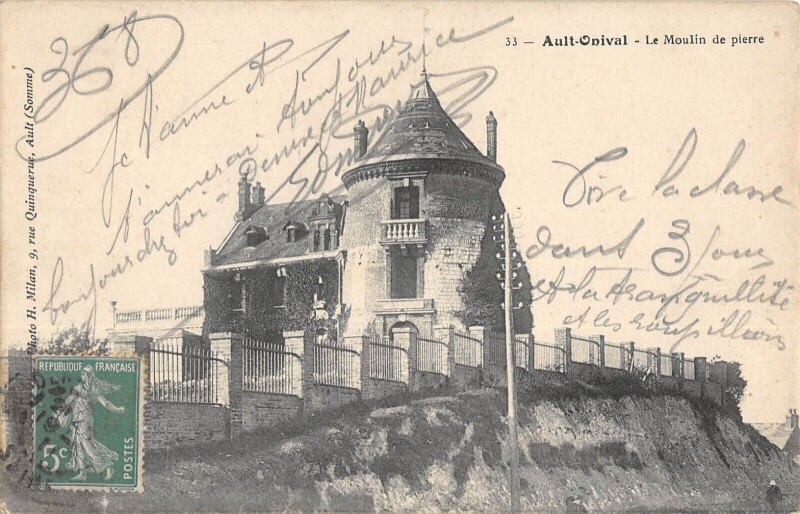 33 — Ault-Onival - Le Moulin de pierre
368
Je t'aime et
t'aimerai toujours
bonjour chez toi - Denise Maurice
Vive la classe
dans 3 jours
et la tranquillité
et les roupillons
Photo H. Milan, 9, rue Quinquerue, Ault (Somme)
REPUBLIQUE FRANÇAISE
5c
POSTES